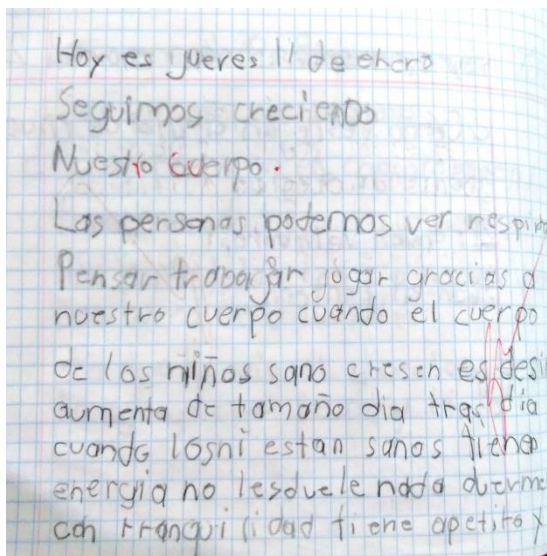 Hoy es jueves 11 de enero
Seguimos creciendo
Nuestro cuerpo.
Las personas podemos ver respir
Pensar trabagar jugar gracias a
nuestro cuerpo cuando el cuerpo
de los niños sano cresen es desir
aumenta de tamaño dia tras dia
cuando losni estan sanos tienen
energia no lesduele nada duerme
con tranquilidad tiene apetito y